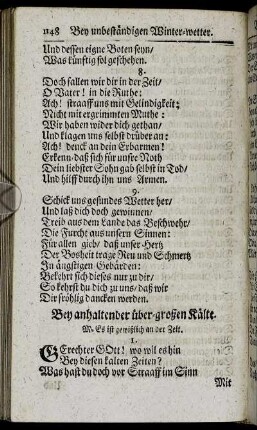 1148 Bey unbeständigen Winter-wetter.
Und dessen eigne Boten seyn/
Was künftig sol geschehen.
8.
Doch fallen wir dir in der Zeit/
O Vater! in die Ruthe:
Ach! straaff uns mit Gelindigkeit;
Nicht mit ergrimmten Muthe:
Wir haben wider dich gethan/
Und klagen uns selbst drüber an:
Ach! denck an dein Erbarmen!
Erkenn daß sich für unser Noth
Dein liebster Sohn gab selbst in Tod/
Und hilff durch ihn uns Armen.
9.
Schick uns gesundes Wetter her/
Und laß dich doch gewinnen/
Treib aus dem Lande das Beschwehr/
Die Furcht aus unsern Sinnen:
Für allen gieb/ daß unser Hertz
Der Bosheit trage Reu und Schmertz
In ängstigen Gebärden:
Bekehrt sich dieses nur zu dir/
So kehrst du dich zu uns/ daß wir
Dir frölig dancken werden.
Bey anhaltender über-großen Kälte.
M. Es ist gewißlich an der Zeit.
1.
GErechter GOtt! wo wil es hin
Bey diesen kalten Zeiten?
Was hast du doch vor Straaff im Sinn
Mit